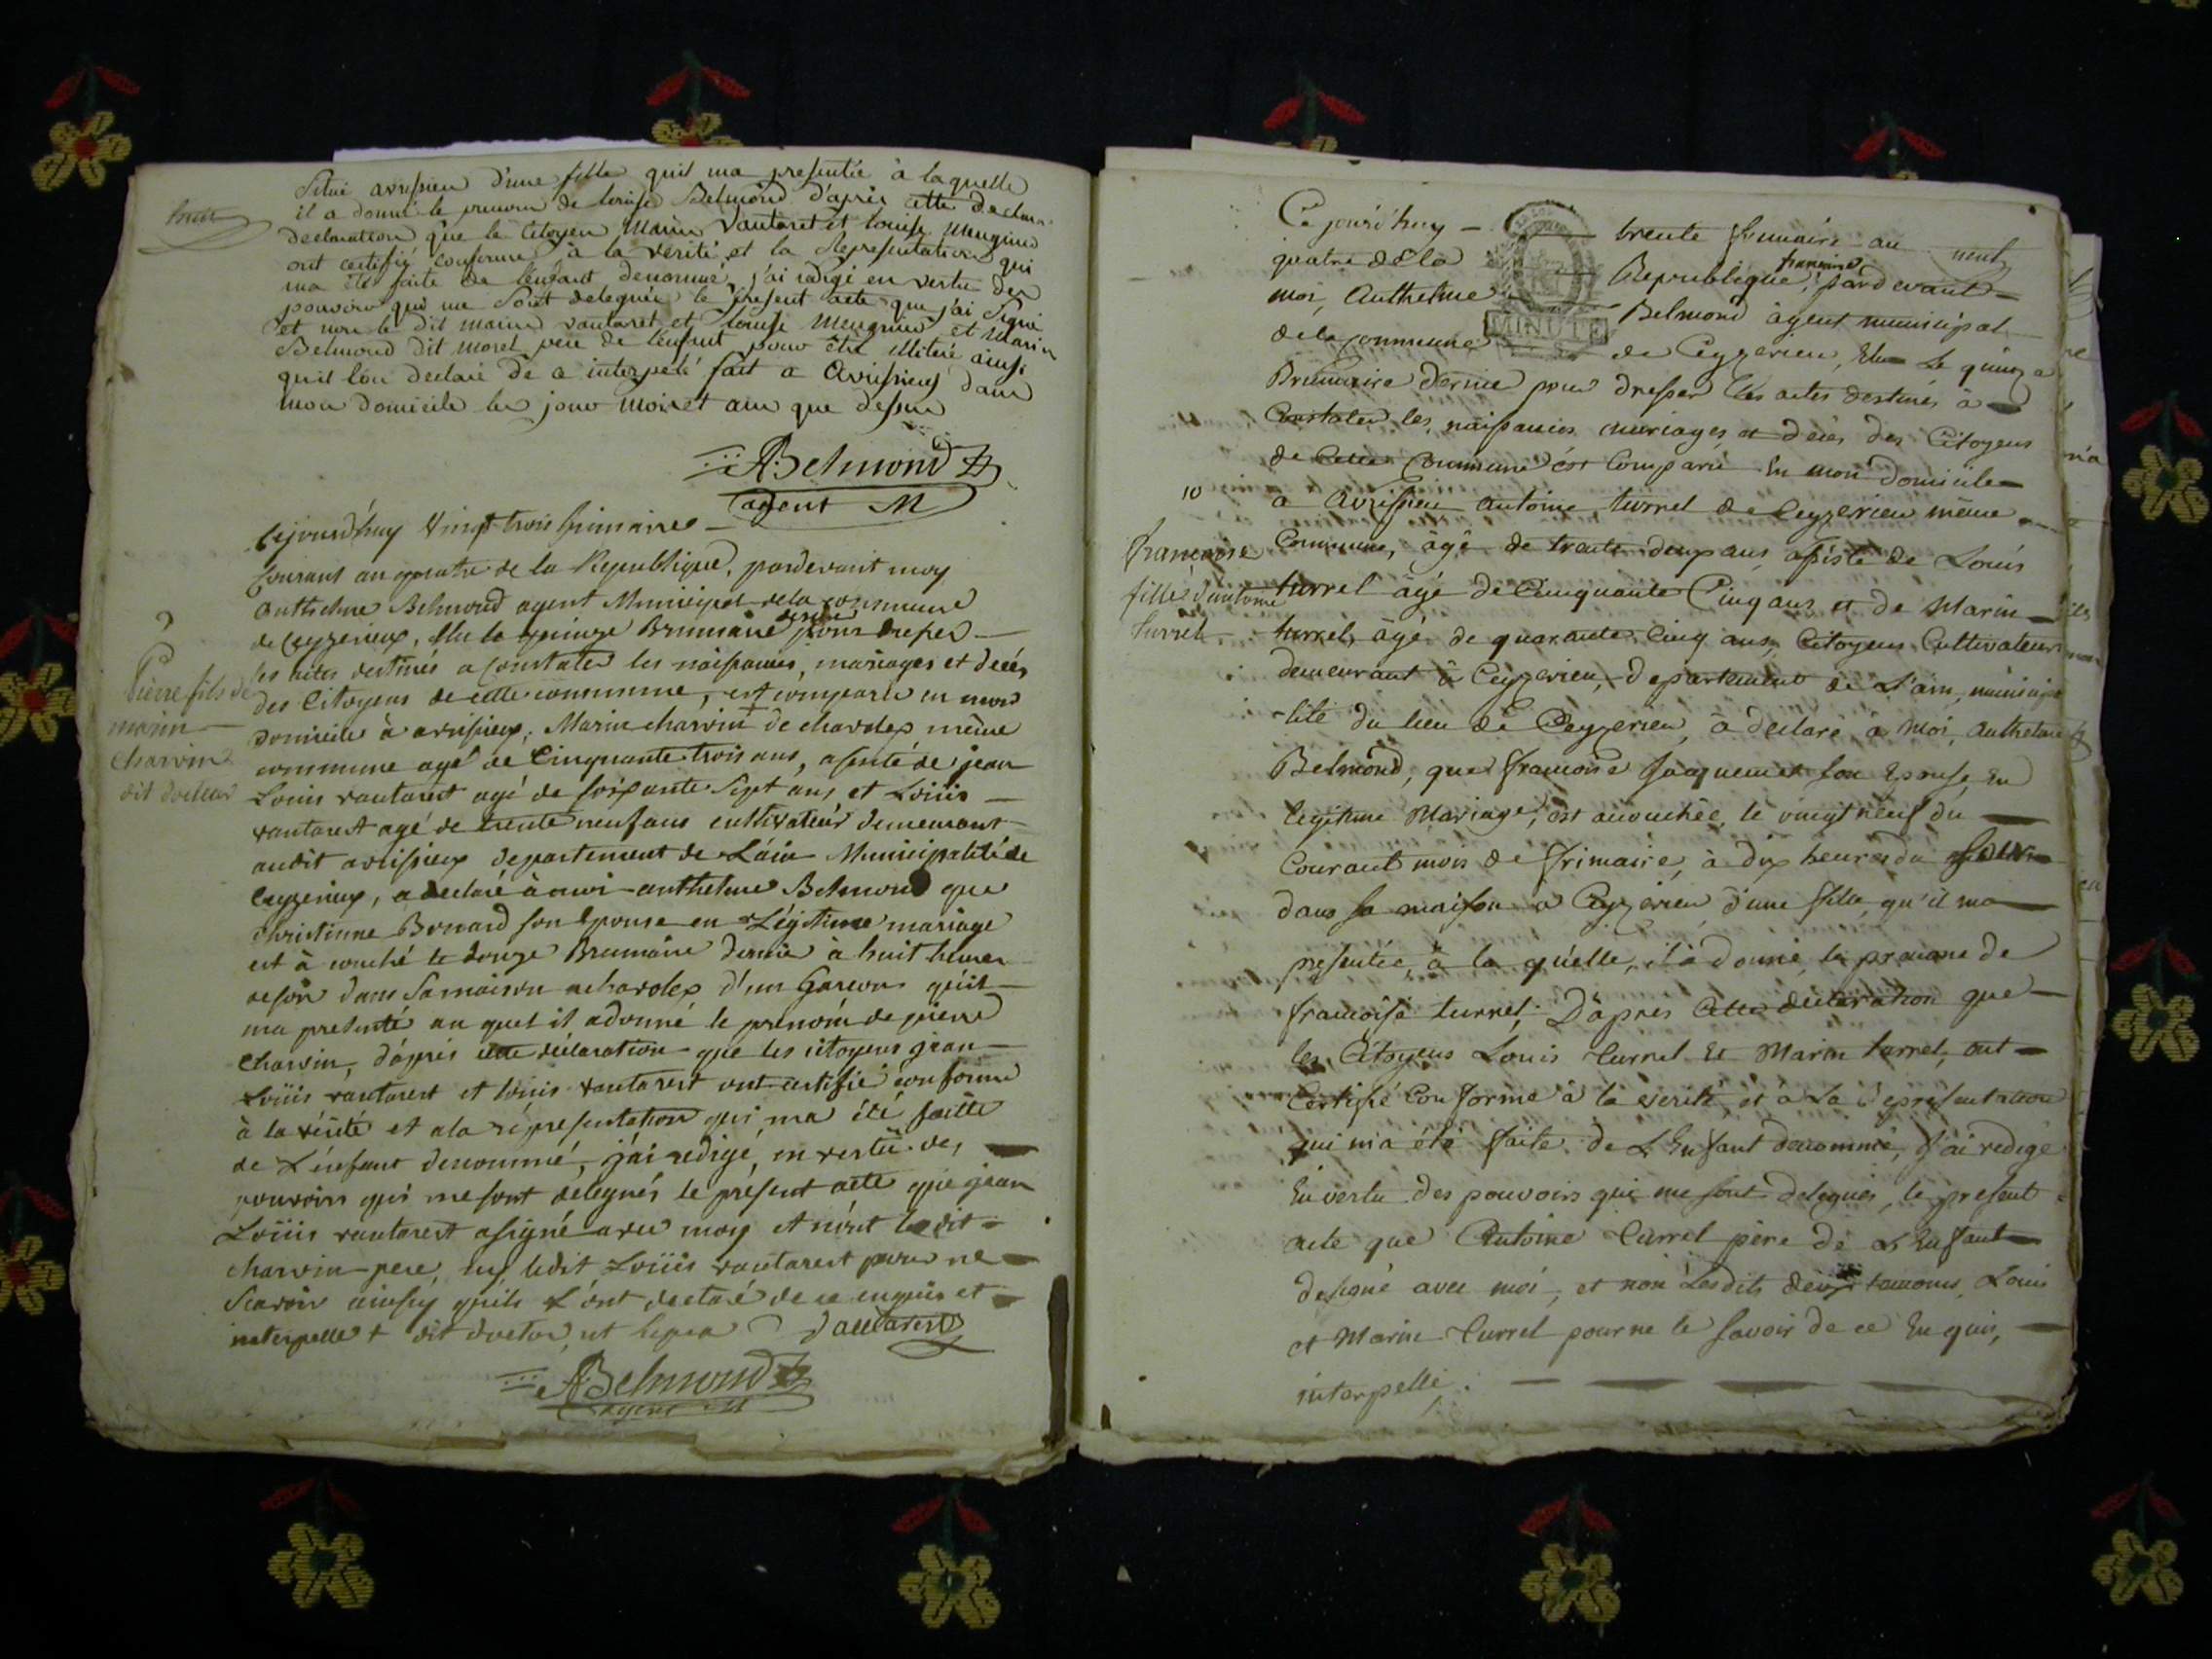 avrissieu d'une fille quil ma presentée à laquelle
il a donné le prenom de louise Belmond d'après cette declara
declaration que le Citoyen Marin Vautaret et louise Meugnier
ont certifié conforme à la vérité et la representation qui
ma été faite de l'enfant denommé, j'ai redigé en vertu des
pouvoirs qui me sont delegués le present acte que j'ai Signé
et non le dit marin vautaret et louise Meugnier et Marin
Belmond dit Morel pere de l'enfant pour être illiteré ainsi
quil l'ou declaré de ce interpelé fait a Avrissieux dans
mon domicile les jour mois et an que dessus
ABelmond
agent M
9
Pierre fils de
marin
Charvin
dit docteur
Cejourd'huy Vingt trois frimaires
Courant an quatre de la Republique, pardevant moy
Anthelme Belmond agent Municipal de la commune
de Ceyzerieux, Elu le quinze Brumaire dernié pour dresser
les actes destinés a Constater les naissances, mariages et décés
des Citoyens de cette commune, est comparu en mon
domicile à avrissieux, Marin charvin + de charolex même
commune agé de Cinquante trois ans, assisté de jean
Louis vautarest agé de soixante Sept ans et Loüis
vautarest agé de trente neuf ans cultivateur demeurant
audit avrissieux departement de L'ain Municipalité de
Ceyzerieux, a declaré à moi anthelme Belmond que
christinne Bonard son Epouse en Légitime mariage
est à couché le douze Brumaire dernié à huit heures
de soir dans Sa maison a charolex d'un Garcon quil
ma presenté au quel il adonné le prénom de pierre
Charvin, d'après cette déclaration que les citoyens jean
Loüis vautarest et loüis vautarest ont certifié conforme
à la vérité et a la répresentation qui ma été faitte
de L'énfant denommé, j'ai redigé, en vertu des
pouvoirs qui me sont délegués le present acte que jean
Loüis vautarest a signé avec moy et nont le dit
charvin pere, ny ledit Loüis vautarest pour ne
Scavoir ainsy quils L'ont declaré de ce enquis et
interpelle + dit doctor, et Vautarest
ABelmond
agent M
Ce jourd'huy trente frimaire an
quatre de la Republique française, pardevant
moi, Anthelme Belmond agent municipal
MINUTE
de la commune de Ceyzerieu, Elu le quinze
Brumaire dernié pour dresser les actes destinés à
Constater les naissances mariages et décès des Citoyens
de Cette Commune est Comparu En mon domicile
10
françoise
fille d'antoine
turrel
a avrissieu antoine turrel de Ceyzerieu même
Commune, âgé de trente deux ans, assisté de Louis
turrel agé de Cinquante Cinq ans et de Marin
turrel, âgé de quarante Cinq ans, Citoyens Cultivateurs
demeurant à Ceyzerieu, departement de L'ain, municipa
-lité du lieu de Ceyzerieu, à declaré à moi, Anthelme
Belmond, que francoise Jacquemet son Epouse, En
legitime Mariage, est accouchée, le vingt neuf du
Courant mois de frimaire, à dix heures du Soir
dans sa maison a Ceyzerieu d'une fille, qu'il ma
presentée, à la quelle, il à donné le prenom de
francoise turrel, D'apres Cette déclaration que
les Citoyens Louis turrel Et Marin turrel, ont
Certifié Conforme à la verité, et à La Représentation
qui m'a été faite de L'Enfant denommé, J'ai redigé
En vertu des pouvoirs qui me sont delegués, le present
acte que Antoine turrel père de L'Enfant
a signé avec moi, et non Lesdits deux temoins, Louis
et Marin turrel pour ne le savoir de ce Enquis,
interpellé.